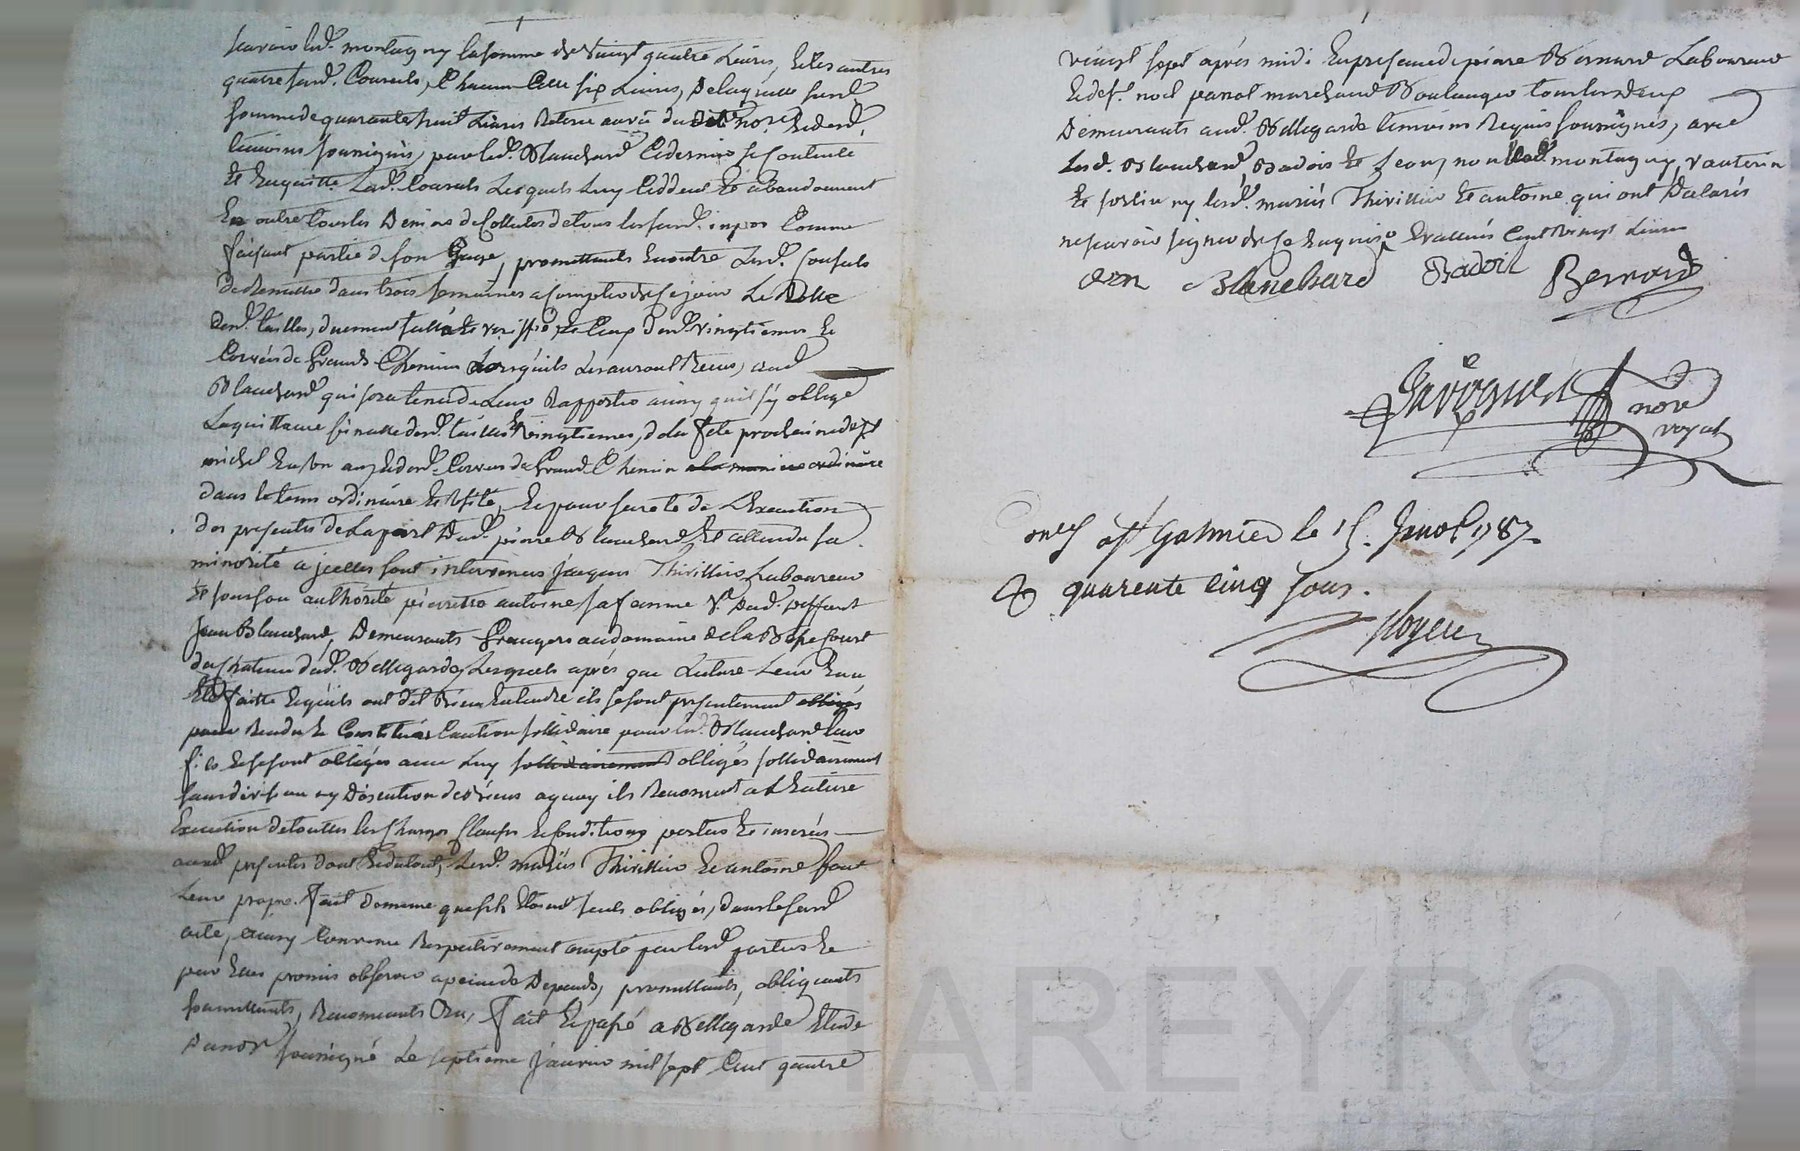 scavoir led. montagny la somme de vingt quatre Livres, Et les autres
quatre susd. Consuls, Chacun Celle six Livres, De laquelle susd.
somme de quarante huit Livres Retirée au vû dud. no.re Et desd.
temoins soussignés, par led. Blanchard Ce dernier se Contente
Et En quitte Lesd. Consuls Lesquels Luy Cèddent Et abandonnent
En outre tous les Deniers de Collectes de tous les susd. impos Comme
faisant partie de son Gage, promettants En outre Lesd. Consuls
de Remettre dans trois semaines a Compter de Ce jour Le Rolle
desd. tailles, duement fait et veriffié, Et Ceux desd. vingtiemes Et
Corvées de Grands Chemins Lorsquils Les auront Reçus, aud.
Blanchard qui sera tenu de Leur Rapporter ainsy quil s'y oblige
La quittance finalle desd. tailles Et vingtiemes, de la fete prochaine de st
michel En un an, Et desd. Corvées de Grand Chemin a la maniere ordinaire
dans le tems ordinaire Et Usité, Et pour sureté de L'Execution
des presentes de La part Dud. pierre Blanchard Et attendu sa
minorité a jcelles sont intervenus Jacques Thivillier Laboureur
Et sous son authorité pierrette antoine sa femme v.e Dud. deffunt
Jean Blanchard, Demeurants Grangers au domaine de la Basse Court
du chateau dud. Bellegarde, Lesquels après que Lecture Leur En a
Eté faitte Et qu'ils ont dit Bien Entendre ils se sont presentement obligés
pour Rendu Et Constitués Caution sollidaire pour led. Blanchard Leur
fils Et se sont obligés avec Luy sollidairement obligés sollidairement
sans division ny Discution de Biens a quoy ils Renoncent a L'Entiere
Execution de touttes les Charges Clauses Et Conditions portées Et inserées
aux presentes dont Du tout, Lesd. mariés Thivillier Et antoine font
Leur propre fait Comme que s'ils Etoient seuls obligés, dans le susd.
acte, ainsy Convenu Respectivement accepté par lesd. parties Et
par Elles promis observer a peine de Depends, promettants, obligeants
soumettants, Renonceants &a, Fait Et passé a Bellegarde Etude
Du nor.e soussigné Le septieme Janvier mil sept Cent quatre
vingt sept après midi En presence de pierre Bernard Laboureur
Et de s.r noel panal marchand Boulanger tous les deux
Demeurants aud. Bellegarde temoins Requis soussignés, avec
Lesd. Blanchard, Badoit Et Jean, non Led. montagny, vauterin
Et fortin ny lesd. mariés Thivillier Et antoine qui ont Declarés
ne scavoir signer de Ce Enquis Et allivrés Cent vingt Livres
Blanchard Badoit Bernard
nore
royal
Con.lé a St Galmier le 15. Janv. 1787.
R quarente cinq sous.